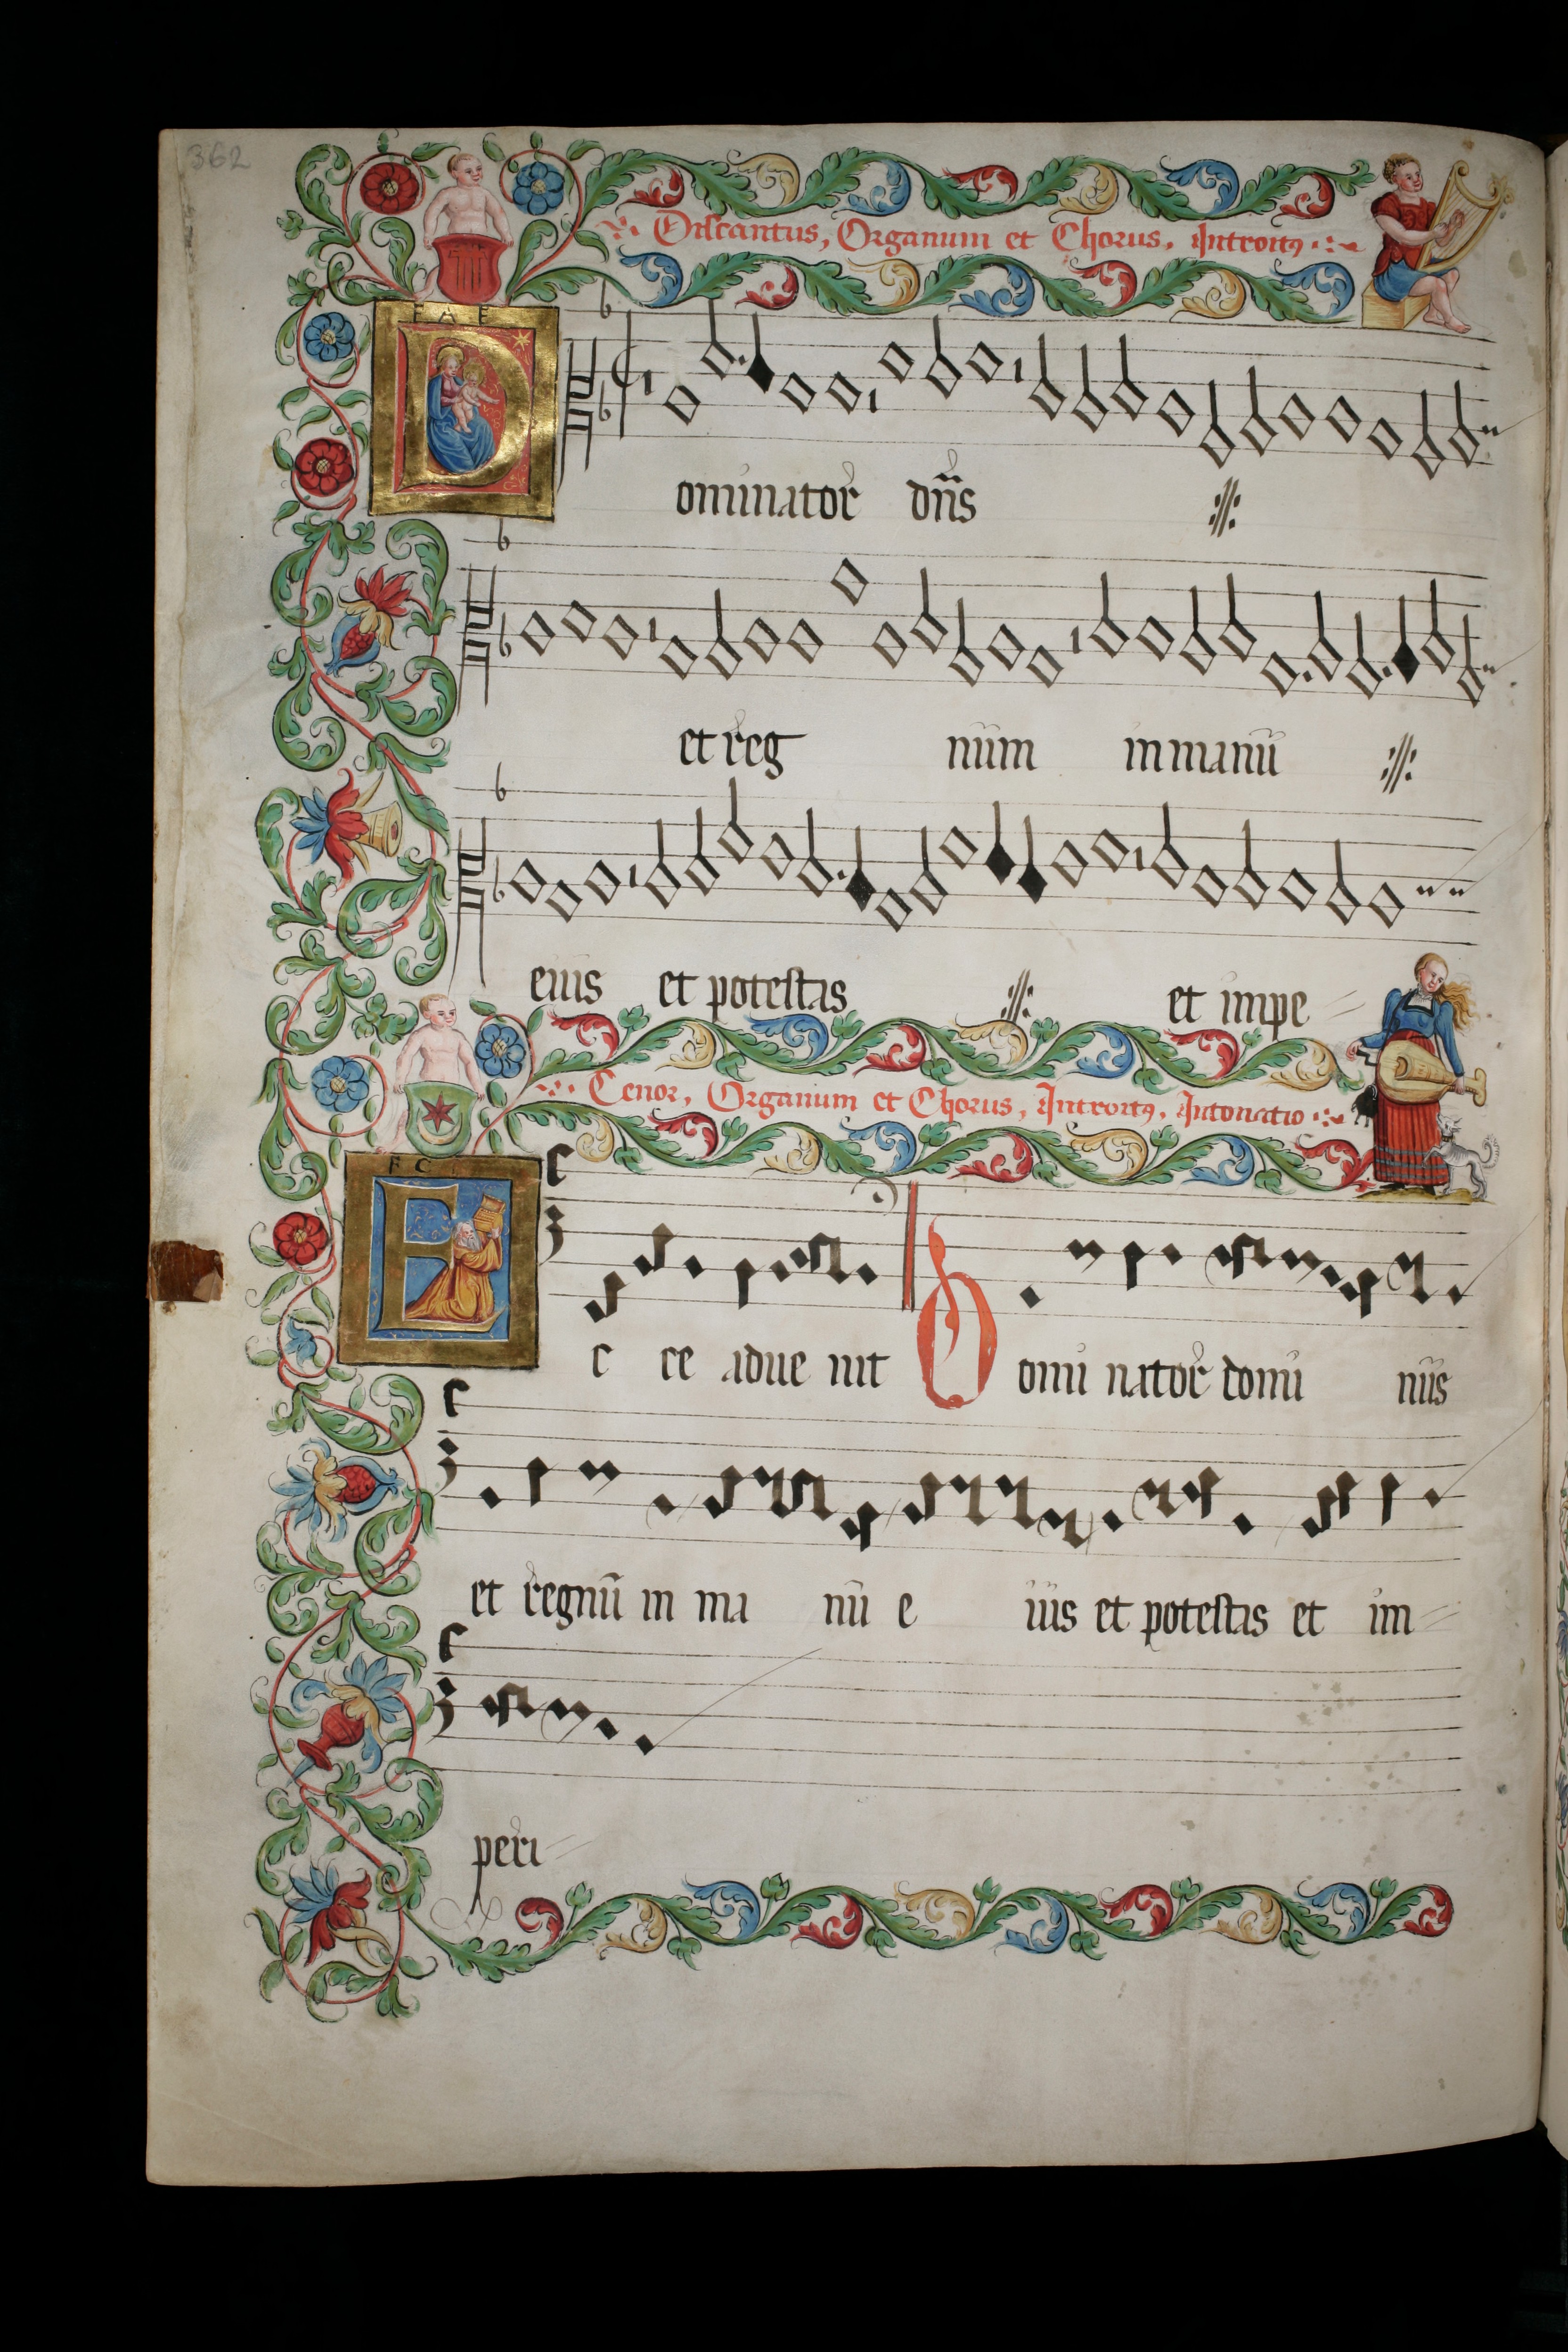 362
Discantus, Organum et Chorus. Introitꝰ
F A E
Dominator dn̄s
et reg num in manu
eius et potestas et impe
Tenor, Organum et Chorus, Introitꝰ, Intonatio
F C
Ecce advenit Domi nator domi nus
et regnū in ma nu e ius et potestas et im
peri